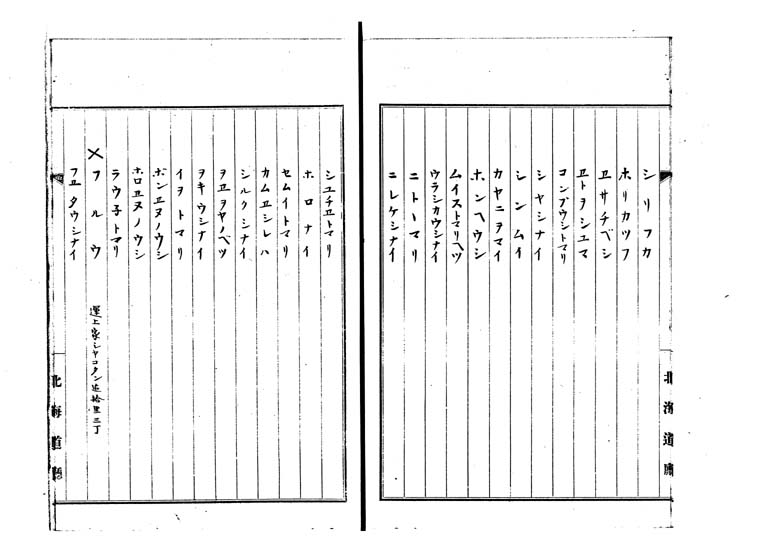 シリフカ
ホリカツフ
ヱサチベシ
ヱトヲシユマ
コンブウシトマリ
シヤシナイ
シンムイ
カヤニヲマイ
ホンヘウシ
ムイストマリヘツ
ウラシカウシナイ
ニトヽマリ
ニレケシナイ
北海道廳
シユチヱトマリ
ホロナイ
セムイトマリ
カムヱシレハ
シルクシナイ
ヲヱヲヤノベツ
ヲキウシナイ
イヲトマリ
ホンヱヌノウシ
ホロヱヌノウシ
ラウ子トマリ
フルウ 運上家シヤコタン迄拾里三丁
フヱタウシナイ
北海道廳